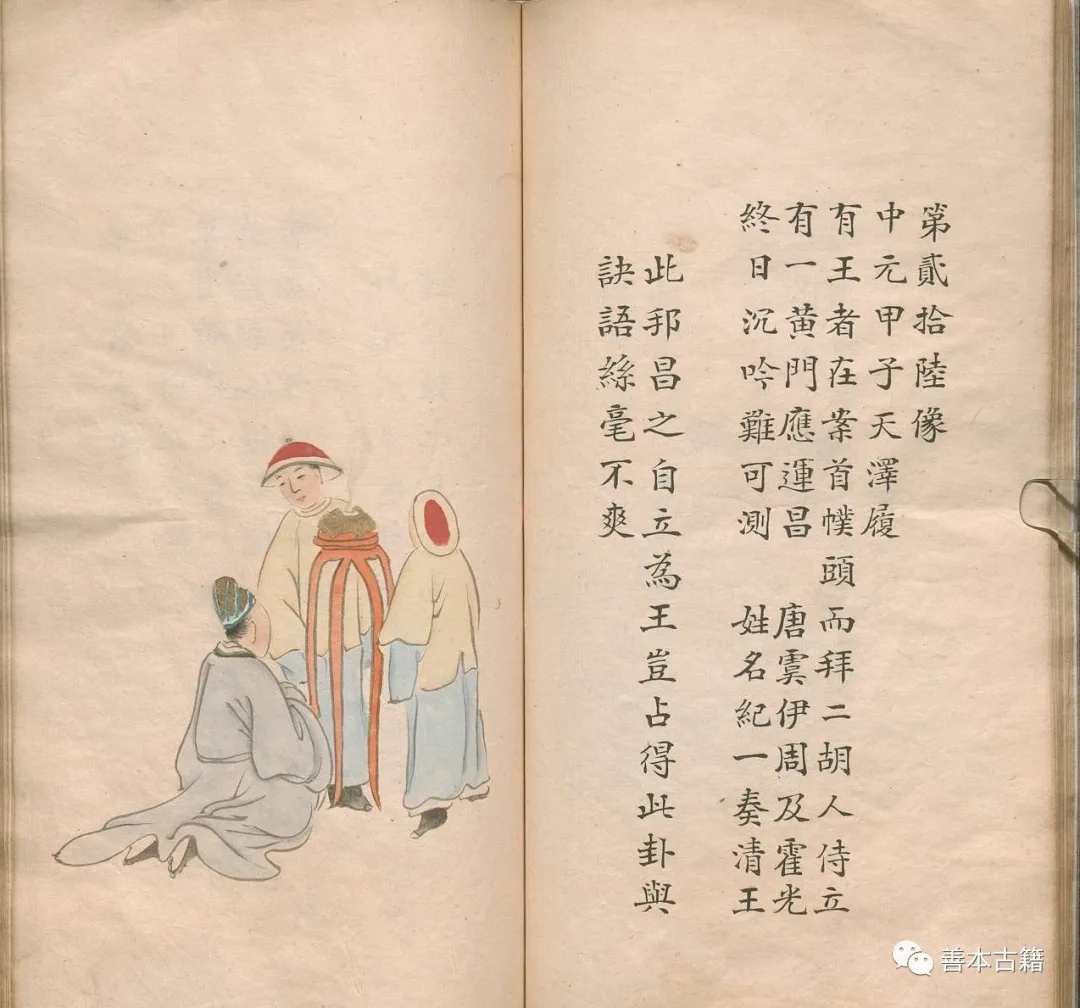 第貳拾陸像
中元甲子天澤履
有王者在案首幞頭而拜二胡人侍立
有一黃門應運昌 唐虞伊周及霍光
終日沉吟難可測 姓名紀一奏清王
此邦昌之自立為王豈占得此卦與
訣語絲毫不爽
善本古籍